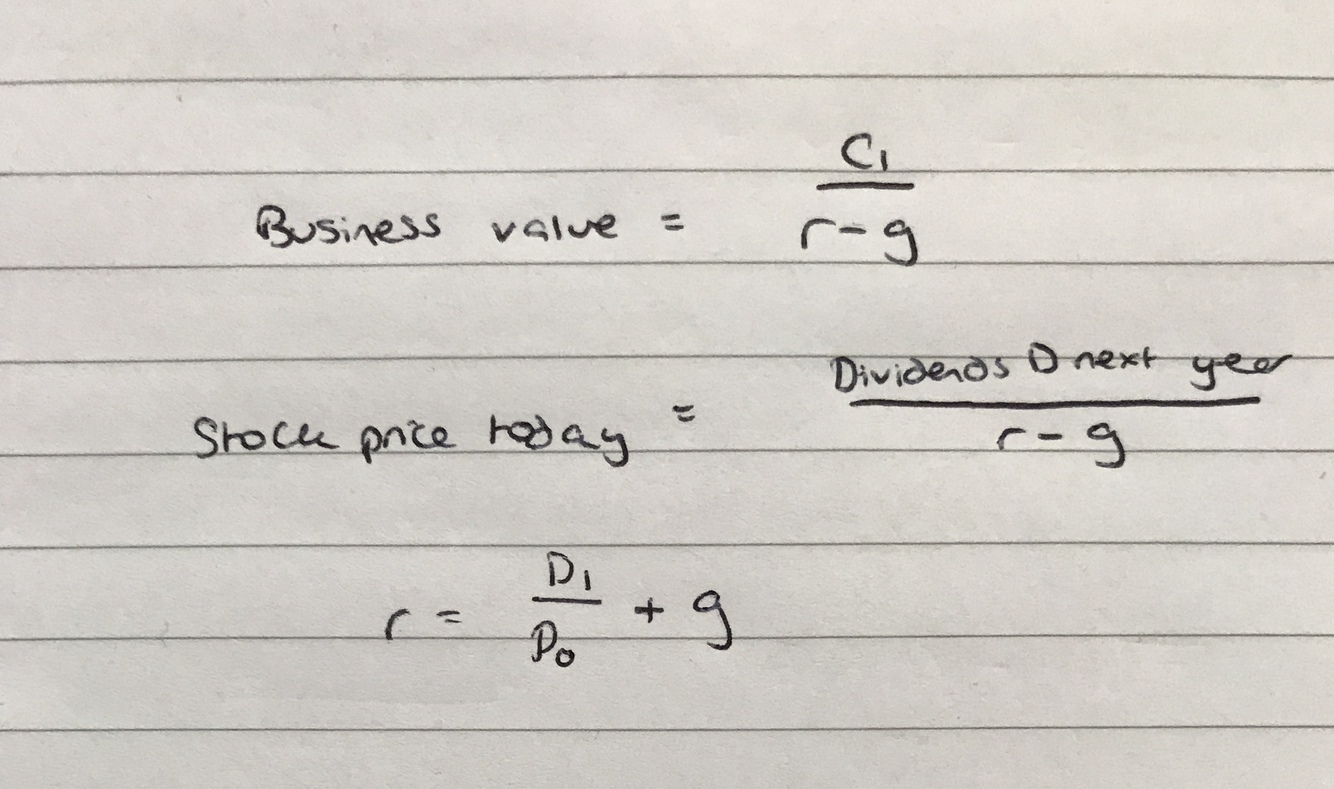 Business value = C₁ / r - g
Stock price today = Dividends D next year / r - g
r = D₁ / P₀ + g